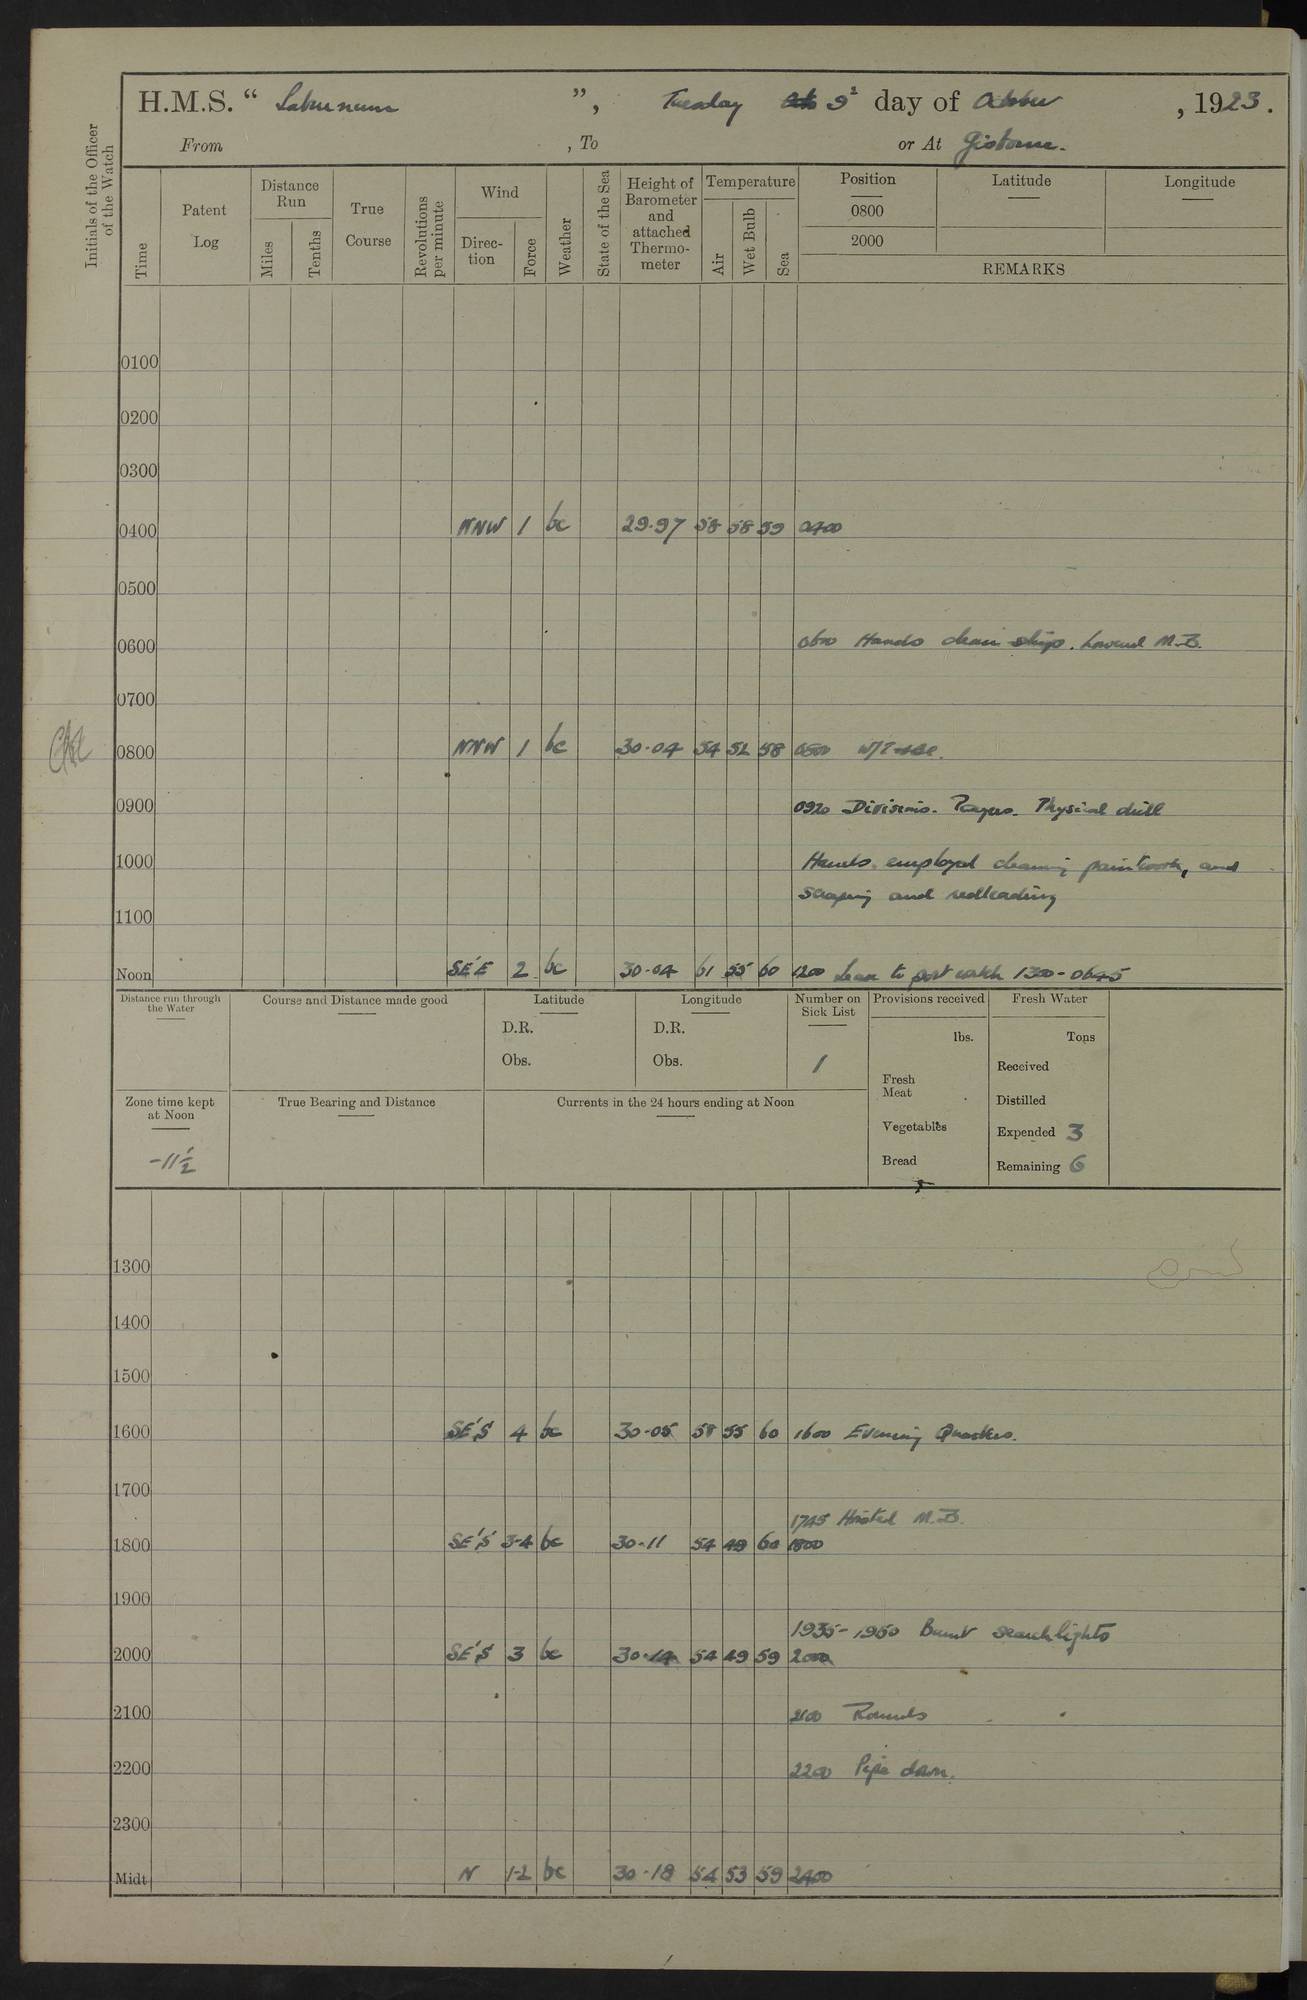 H.M.S. “ Laburnum ”, Tuesday 9th day of October , 1923.
From , To or At Gisborne.
Initials of the Officer of the Watch
Time
Patent Log
Distance Run
Miles
Tenths
True Course
Revolutions per minute
Wind
Direc-tion
Force
Weather
State of the Sea
Height of Barometer and attached Thermo-meter
Temperature
Air
Wet Bulb
Sea
Position
0800
2000
Latitude
Longitude
REMARKS
0100
0200
0300
0400 NNW 1 bc 29.97 58 58 59 0400
0500
0600 0600 Hands clean ship. Lowered M.B.
0700
0800 NNW 1 bc 30.04 54 52 58 0800 W/T
0900 0920 Divisions. Prayers. Physical drill
1000 Hands employed cleaning paintwork, and
scraping and redleading
1100
Noon SE'E 2 bc 30.04 61 55 60 1200 Leave to port watch 1300-0645
Distance run through the Water
Course and Distance made good
Latitude
D.R.
Obs.
Longitude
D.R.
Obs.
Number on Sick List
1
Provisions received
lbs.
Fresh Meat
Vegetables
Bread
Fresh Water
Tons
Received
Distilled
Expended 3
Remaining 6
Zone time kept at Noon
-11½
True Bearing and Distance
Currents in the 24 hours ending at Noon
1300
1400
1500
1600 SE'S 4 bc 30.05 58 55 60 1600 Evening Quarters.
1700
1745 Hoisted M.B.
1800 SE'S 3-4 bc 30.11 54 49 60 1800
1900
1935-1950 Burnt searchlights
2000 SE'S 3 bc 30.14 54 49 59 2000
2100 2100 Rounds
2200 2200 Pipe down.
2300
Midt N 1-2 bc 30.18 54 53 59 2400